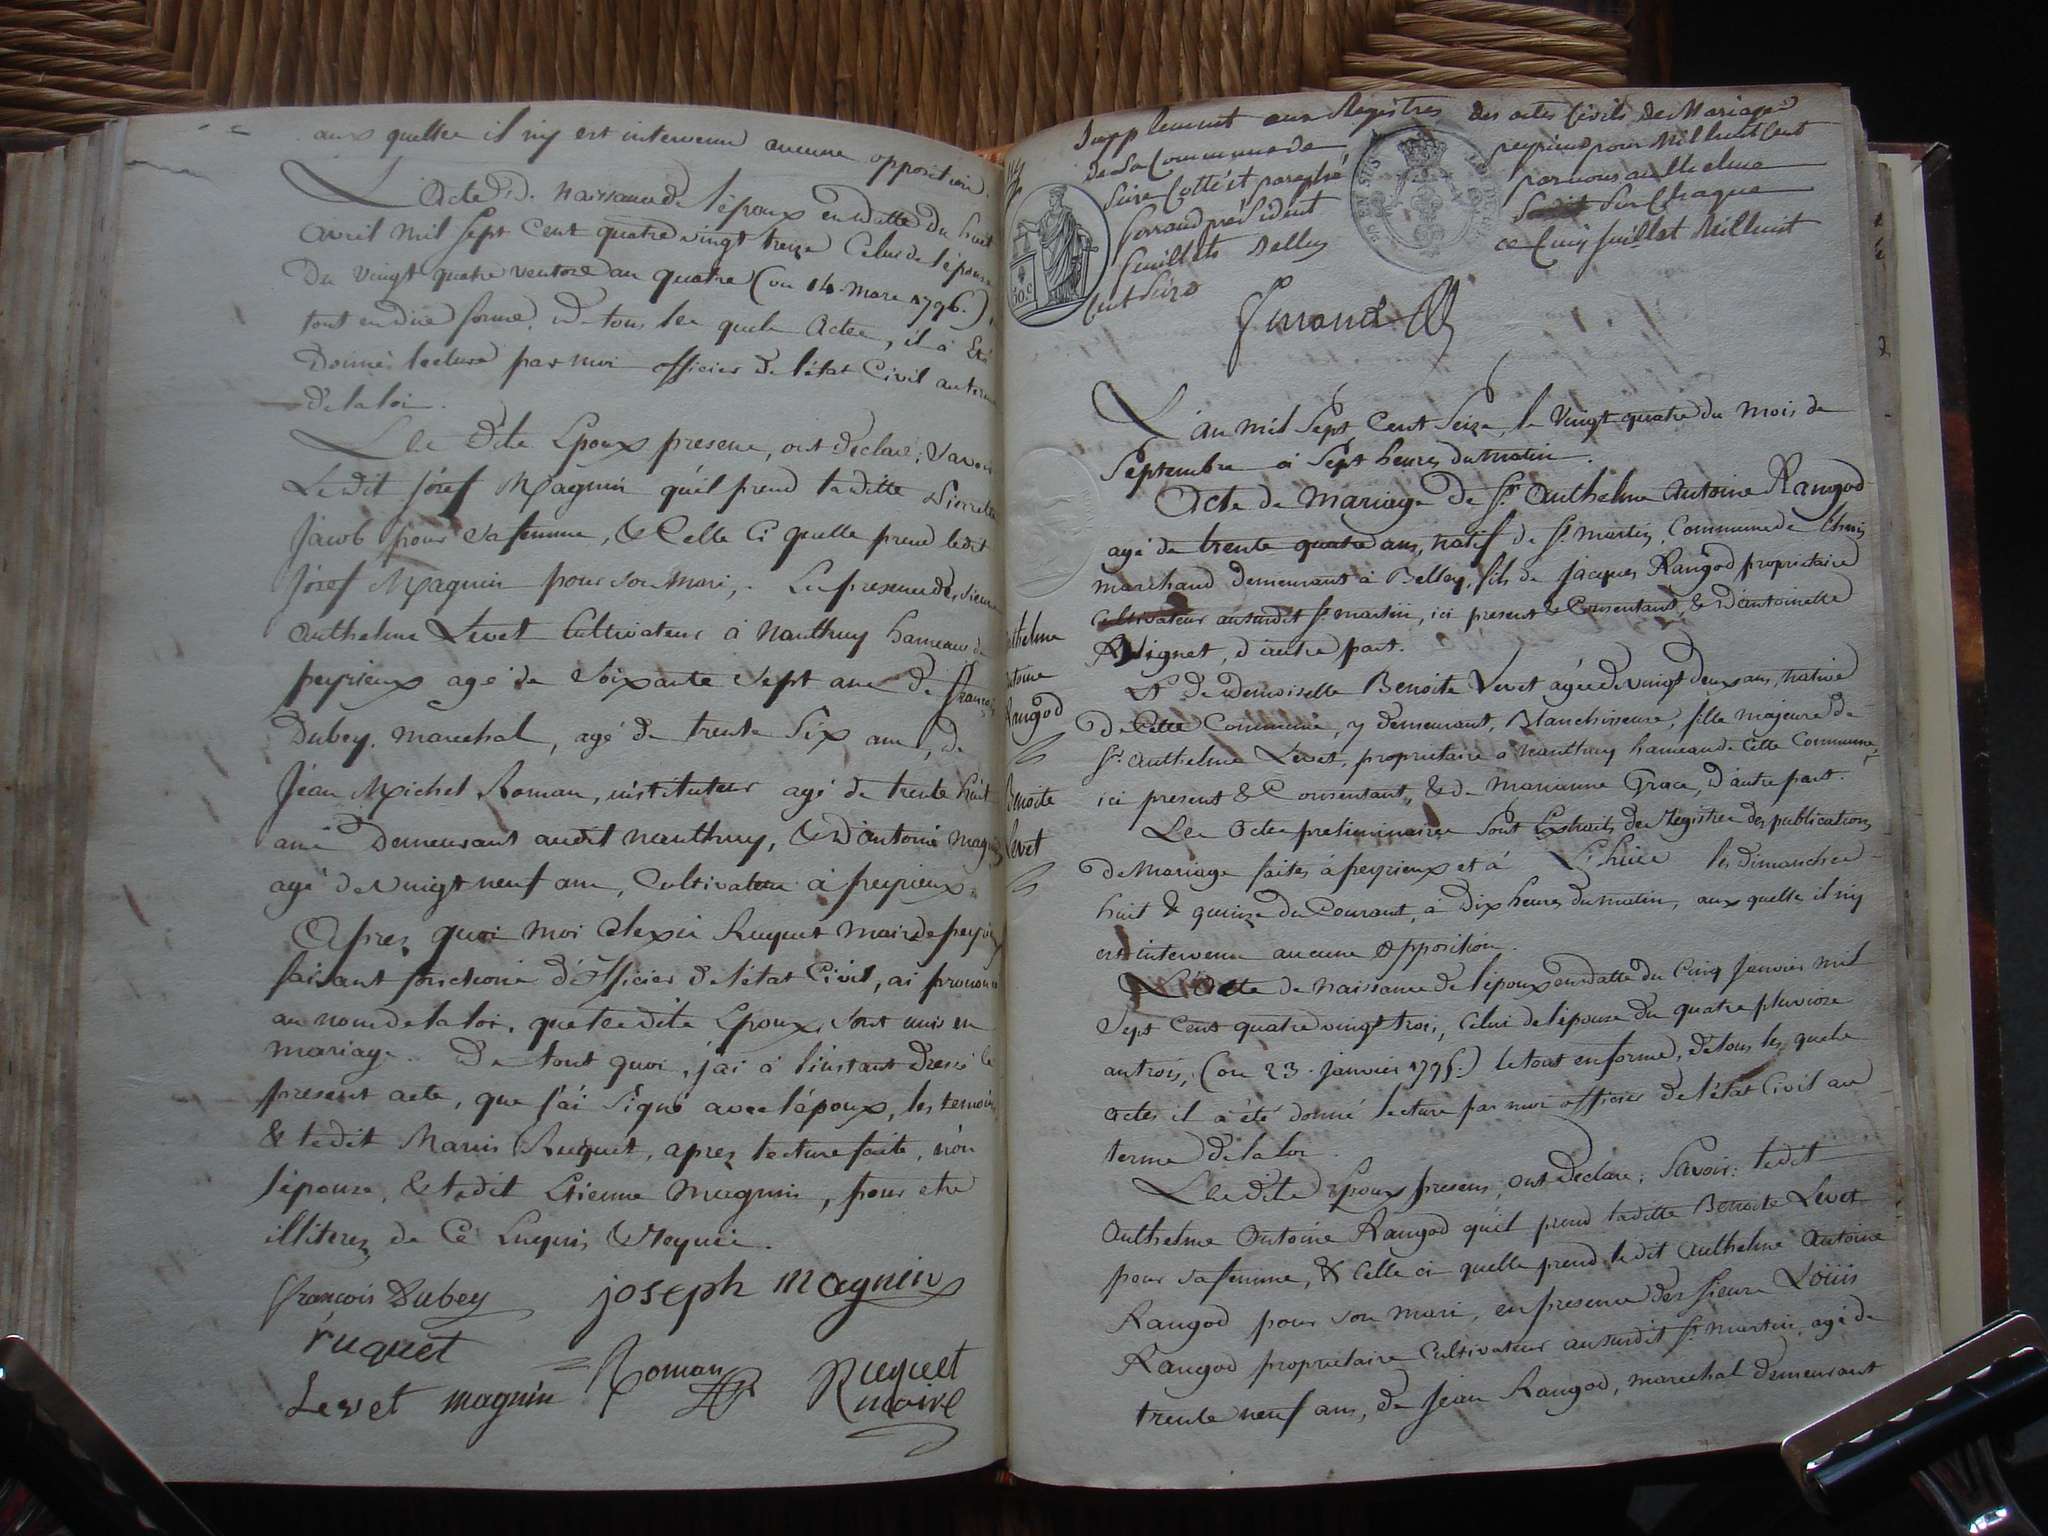 aux quelles il n'y est intervenu aucune opposition.
L'Acte de naissance de l'époux en datte du huit
avril mil sept cent quatre vingt treize Celui de l'épouse
du vingt quatre ventose an quatre (ou 14. mars 1796.)
tout en due forme. de tous les quels Actes, il a été
Donné lecture par moi officier de l'état Civil au terme
de la loi.
Les dits Epoux presens, ont declaré, Savoir
Le dit Josef Magnin qu'il prend la ditte Pierrette
Jacob pour sa femme, & Celle Ci quelle prend ledit
Josef Magnin pour son mari, En presence des sieurs
Anthelme Levet Cultivateur à Nanthuy hameau de
peyrieux agé de soixante sept ans de françois
Dubey, marechal, agé de trente six ans, de
Jean Michel Roman, instituteur agé de trente huit
ans Demeurant audit nanthuy, & d'antoine magnin
agé de vingt neuf ans, Cultivateur à peyrieux.
Après quoi moi Alexis Ruquet maire de peyrieux
faisant fonctions d'officier de l'état Civil, ai prononcé
au nom de la loi, que les dits Epoux, sont unis en
mariage. De tout quoi, j'ai à l'instant dressé le
present acte, que j'ai signé avec l'époux, les temoins
& ledit Ruquet, après lecture faite, non
l'épouse, & ledit Etienne magnin, pour etre
illiterés, de Ce Enquis & Requis.
françois Dubey joseph magnin
ruquet
Levet magnin Roman Ruquet
maire
Supplement aux Registres des actes Civils de Mariages
de la Commune de peyrieux pour Mil huit Cent
Seize Cotté et paraphé par nous anthelme
président sur Chaque
feuillets Belley ce Cinq juillet Mil huit
Cent Seize
50.c
Anthelme
Antoine
Rangod
Benoite
Levet
L'an mil Sept Cent Seize, le Vingt quatre du mois de
Septembre à Sept heures du matin.
Acte de mariage de Sr. Anthelme Antoine Rangod
agé de trente quatre ans, natif de St. martin, Commune de
marchand demeurant à Belley, fils de Jacques Rangod propriétaire
Cultivateur au susdit St. martin, ici present & Consentant, & d'antoinette
d'autre part.
Et de demoiselle Benoite Levet agée de vingt deux ans, native
de Cette Commune, y demeurant, Blanchisseuse, fille majeure de
Sr. Anthelme Levet, propriétaire à nanthuy hameau de Cette Commune,
ici present & Consentant, & de Marianne Grace, d'autre part.
Les Actes preliminaires sont Extraits des Registres des publications
de Mariage faites à peyrieux et à les dimanches
huit & quinze du Courant, à Dix heures du matin, aux quelles il n'y
est intervenu aucune opposition.
L'Acte de naissance de l'époux en datte du Cinq Janvier mil
Sept Cent quatre vingt trois, Celui de l'épouse du quatre pluviose
an trois, (ou 23. janvier 1795.) le tout en forme, de tous les quels
actes il a été donné lecture par moi officier de l'état Civil au
terme de la loi.
Les dits Epoux presens, ont declaré, Savoir: ledit
Anthelme Antoine Rangod qu'il prend laditte Benoite Levet
pour sa femme, & Celle ci quelle prend le dit Anthelme Antoine
Rangod pour son mari, en presence des sieurs Louis
Rangod propriétaire Cultivateur au susdit St. martin, agé de
trente neuf ans, de Jean Rangod, marechal demeurant